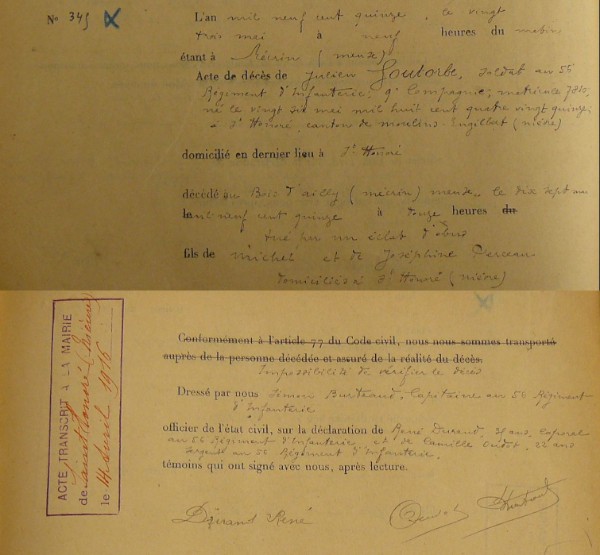 N° 345
L'an mil neuf cent quinze, le vingt
trois mai à neuf heures du matin
étant à Mécrin (meuse)
Acte de décès de Julien Goutorbe, soldat au 56
Régiment d'Infanterie, 9e Compagnie, matricule
né le vingt six mai mil huit cent quatre vingt quinze
à St Honoré, canton de moulins-Engilbert (nièvre)
domicilié en dernier lieu à St Honoré
décédé au Bois d'ailly (mécrin) meuse, le dix sept mai
mil neuf cent quinze à douze heures du
tué par un éclat d'obus
fils de michel et de Joséphine
domiciliés à St Honoré (nièvre)
Conformément à l'article 77 du Code civil, nous nous sommes transporté
auprès de la personne décédée et assuré de la réalité du décès.
Impossibilité de vérifier le décès
Dressé par nous Simon, Capitaine au 56 Régiment
d'Infanterie
officier de l'état civil, sur la déclaration de René Durand, caporal
au 56 Régiment d'Infanterie, et de Camille, 22 ans
sergent au Régiment d'Infanterie,
témoins qui ont signé avec nous, après lecture.
René
ACTE TRANSCRIT A LA MAIRIE
de Saint Honoré (Nièvre)
le 14 avril 1916